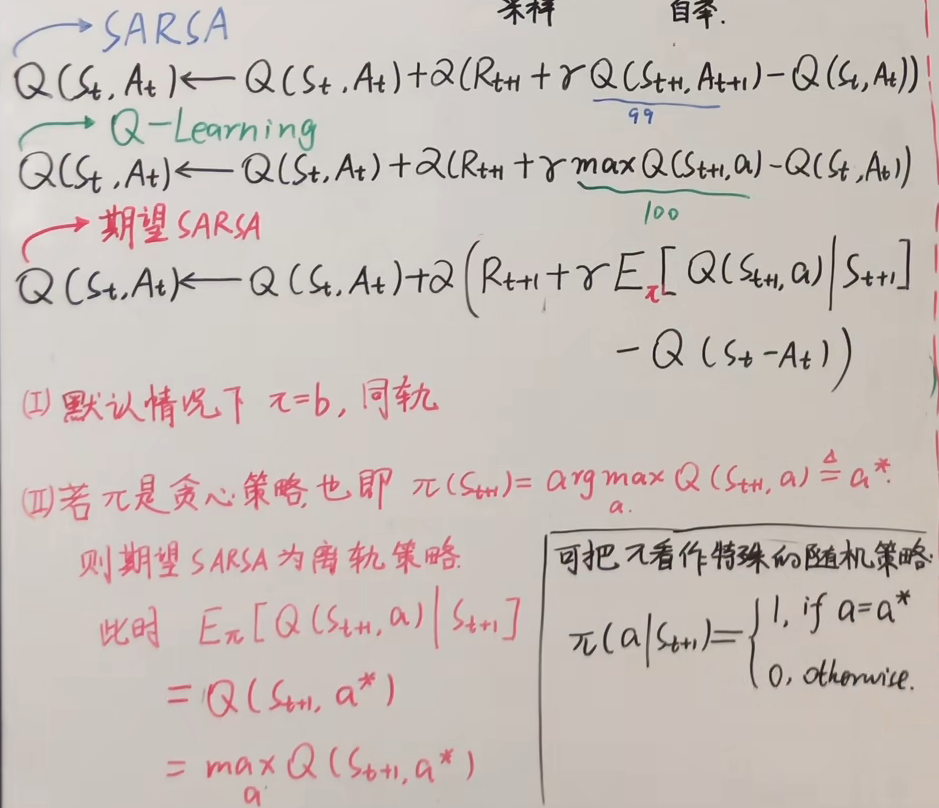 采样 自举.
SARSA
Q(St, At) ← Q(St, At) + α(Rt+1 + γQ(St+1, At+1) - Q(St, At))
99
Q-Learning
Q(St, At) ← Q(St, At) + α(Rt+1 + γ max Q(St+1, a) - Q(St, At))
100
期望SARSA
Q(St, At) ← Q(St, At) + α(Rt+1 + γ Eπ[Q(St+1, a)|St+1]
- Q(St - At))
(I) 默认情况下 π=b, 同轨
(II) 若π是贪心策略,也即 π(St+1) = argmax Q(St+1, a) ≜ a*.
a.
则期望SARSA为离轨策略.
此时 Eπ[Q(St+1, a)|St+1]
= Q(St+1, a*)
= max Q(St+1, a*)
a
可把π看作特殊的随机策略.
π(a|St+1) = { 1, if a=a*
0, otherwise.